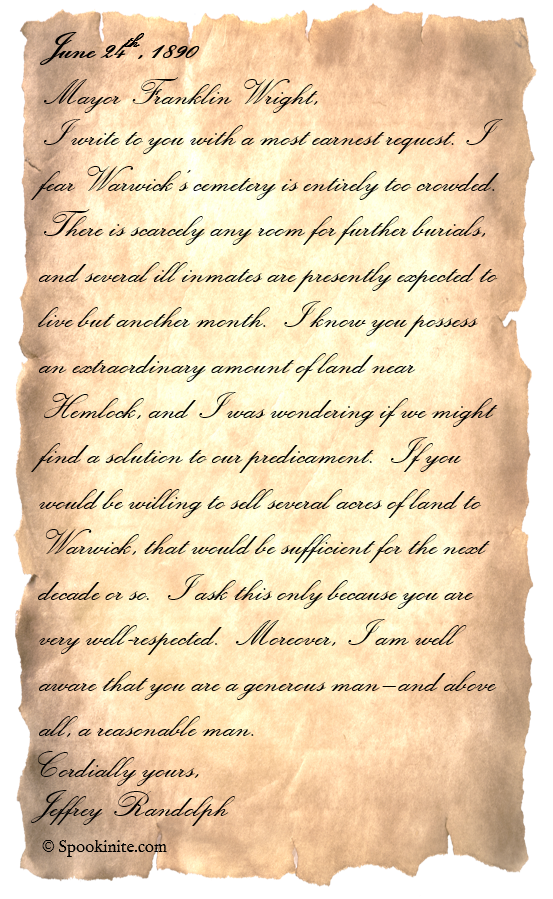 June 24th, 1890
Mayor Franklin Wright,
I write to you with a most earnest request. I
fear Warwick's cemetery is entirely too crowded.
There is scarcely any room for further burials,
and several ill inmates are presently expected to
live but another month. I know you possess
an extraordinary amount of land near
Hemlock, and I was wondering if we might
find a solution to our predicament. If you
would be willing to sell several acres of land to
Warwick, that would be sufficient for the next
decade or so. I ask this only because you are
very well-respected. Moreover, I am well
aware that you are a generous man—and above
all, a reasonable man.
Cordially yours,
Jeffrey Randolph
© Spookinite.com